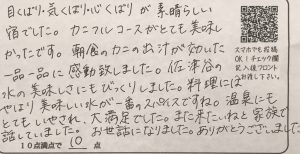 目くばり・気くばり・心くばりが素晴らしい
宿でした。カニフルコースがとても美味し
かったです。朝食のカニのお汁が効いた
一品一品に感動致しました。佐津谷の
水の美味しさにもびっくりしました。料理には
やはり美味しい水が一番のスパイスですね。温泉にも
とてもいやされ、大満足でした。また来たいねと家族で
話していました。お世話になりました。ありがとうございました
10点満点で 10 点
スマホでも投稿
OK!チェック欄
記入後フロント
お渡し下さい。